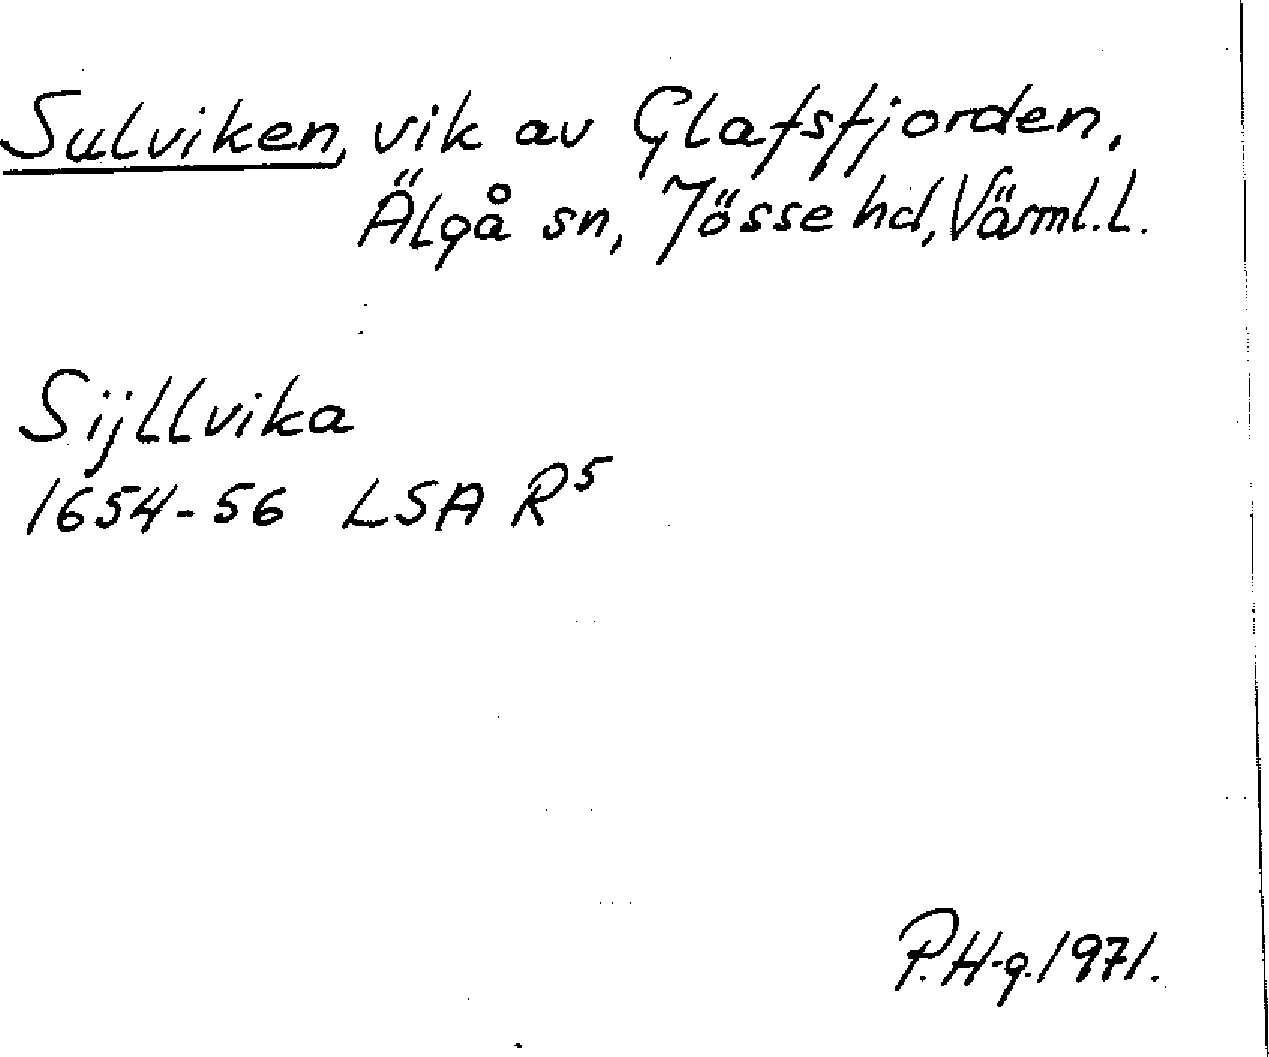 Sulviken, vik av Glafsfjorden,
Älgå sn, Jösse hd, Värml. L.
Sijllvika
1654-56 LSA R⁵
P.H-g. 1971.